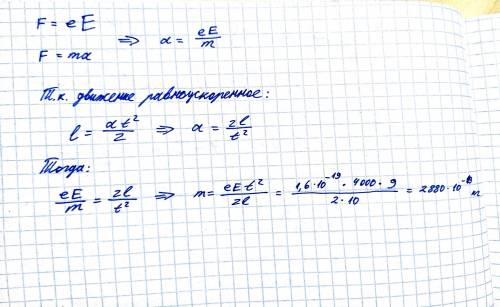 F = eE
F = ma ⇒ a = eE/m
Т.к. движение равноускоренное:
l = at²/2 ⇒ a = 2l/t²
Тогда:
eE/m = 2l/t² ⇒ m = eEt²/2l = 1,6·10⁻¹⁹·4000·9/2·10 = 2880·10⁻¹⁹